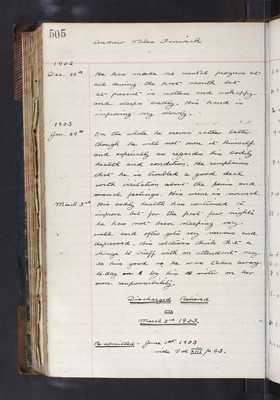 505
Andrew Wilson Fenwick
1902
Dec. 29th He has made no mental progress at
all during the past month but
at present is restless and unhappy
and sleeps badly. His hand is
improving very slowly.
1903
Jan. 29th On the whole he seems rather better
though he will not own it himself
and especially as regards his bodily
health and condition. He complains
that he is troubled a good deal
with irritation about the penis and
sexual feelings. His urine is normal.
March 3rd His bodily health has continued to
improve but for the past few nights
he has not been sleeping very
well and often gets very nervous and
depressed. His relatives think that a
change to Crieff with an attendant may
do him good so he was taken away
to day on by his sister on her
own responsibility.
Discharged Relieved
on
March 3rd 1903.
Re-admitted - June 1st 1903
vide Vol XIII p 93.